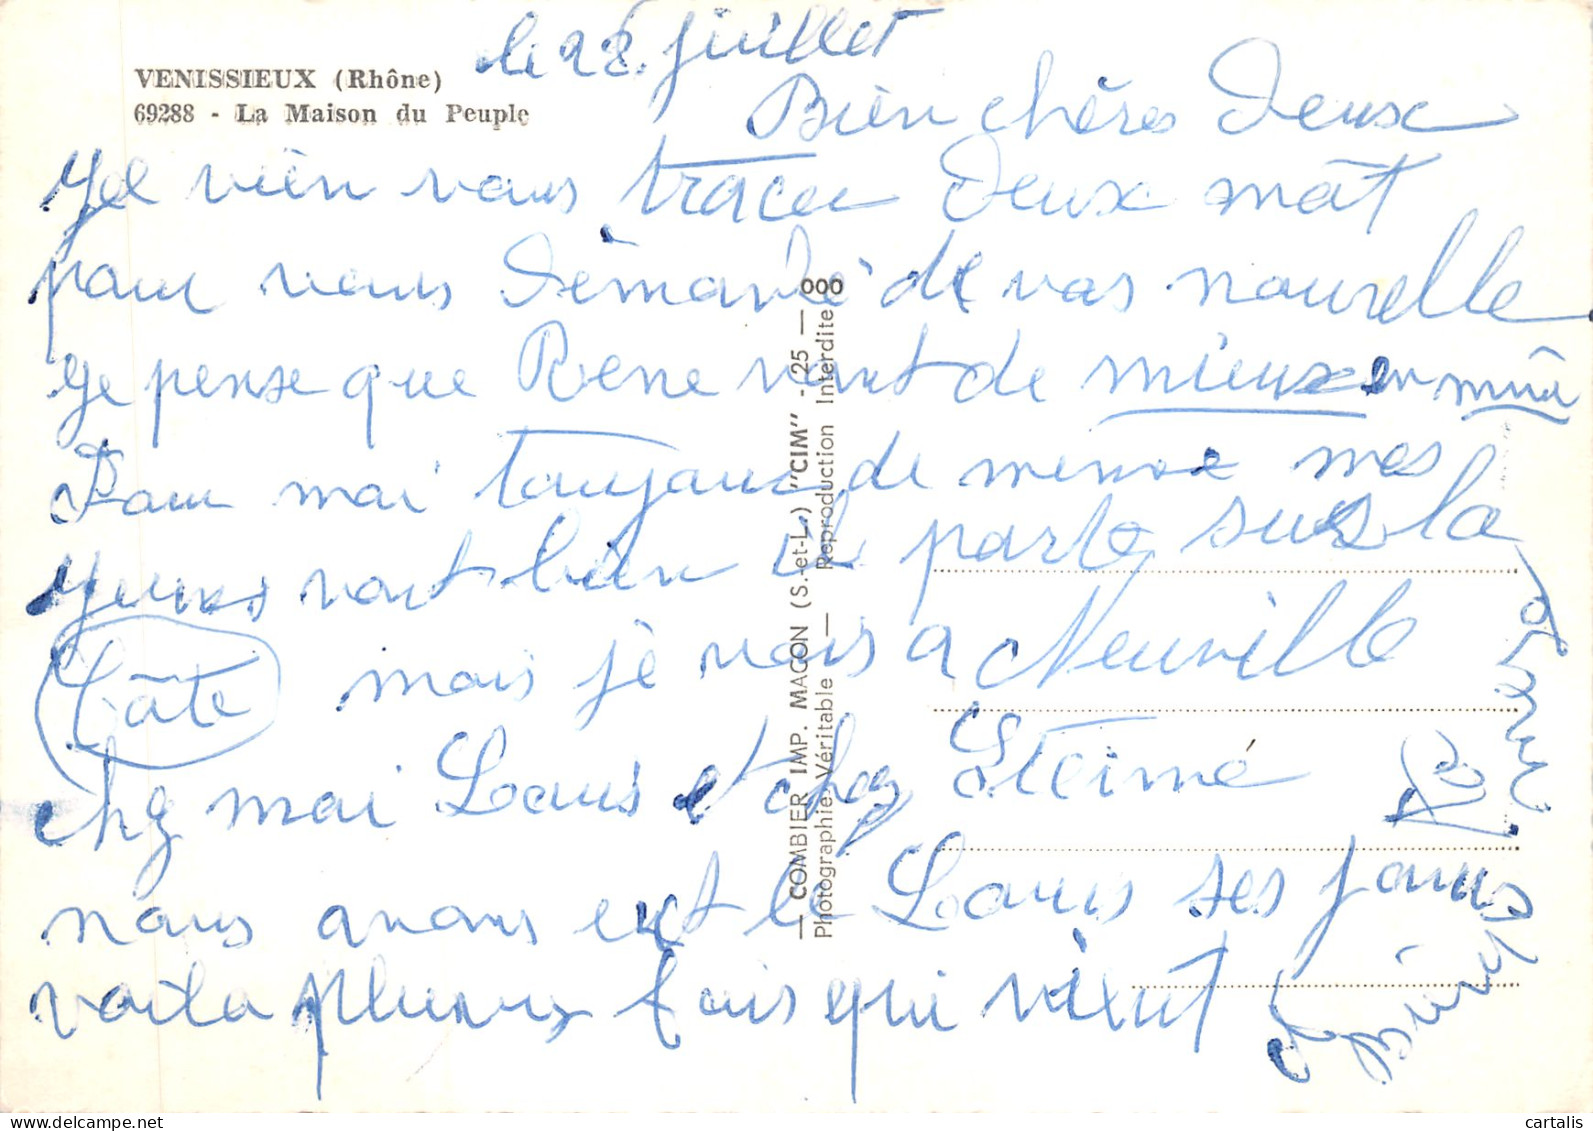 VENISSIEUX (Rhône)
69288 - La Maison du Peuple
le 28 juillet
Bien chères Deux
Je vien vous tracer Deux mot
pour vous Démandé de vos nouvelle
Je pense que René vat de mieux en mieu
Pour moi toujour de mense mes
yeux vont bien je parte sur la
Côte mais je vais a Neuville
chez moi Louis et chez Etieine
nous avons eut le Louis ses jours
voila plusieurs fois qui vient
— COMBIER IMP. MACON (S.-et-L.) "CIM" - 25 — 000
Photographie Véritable — Reproduction Interdite